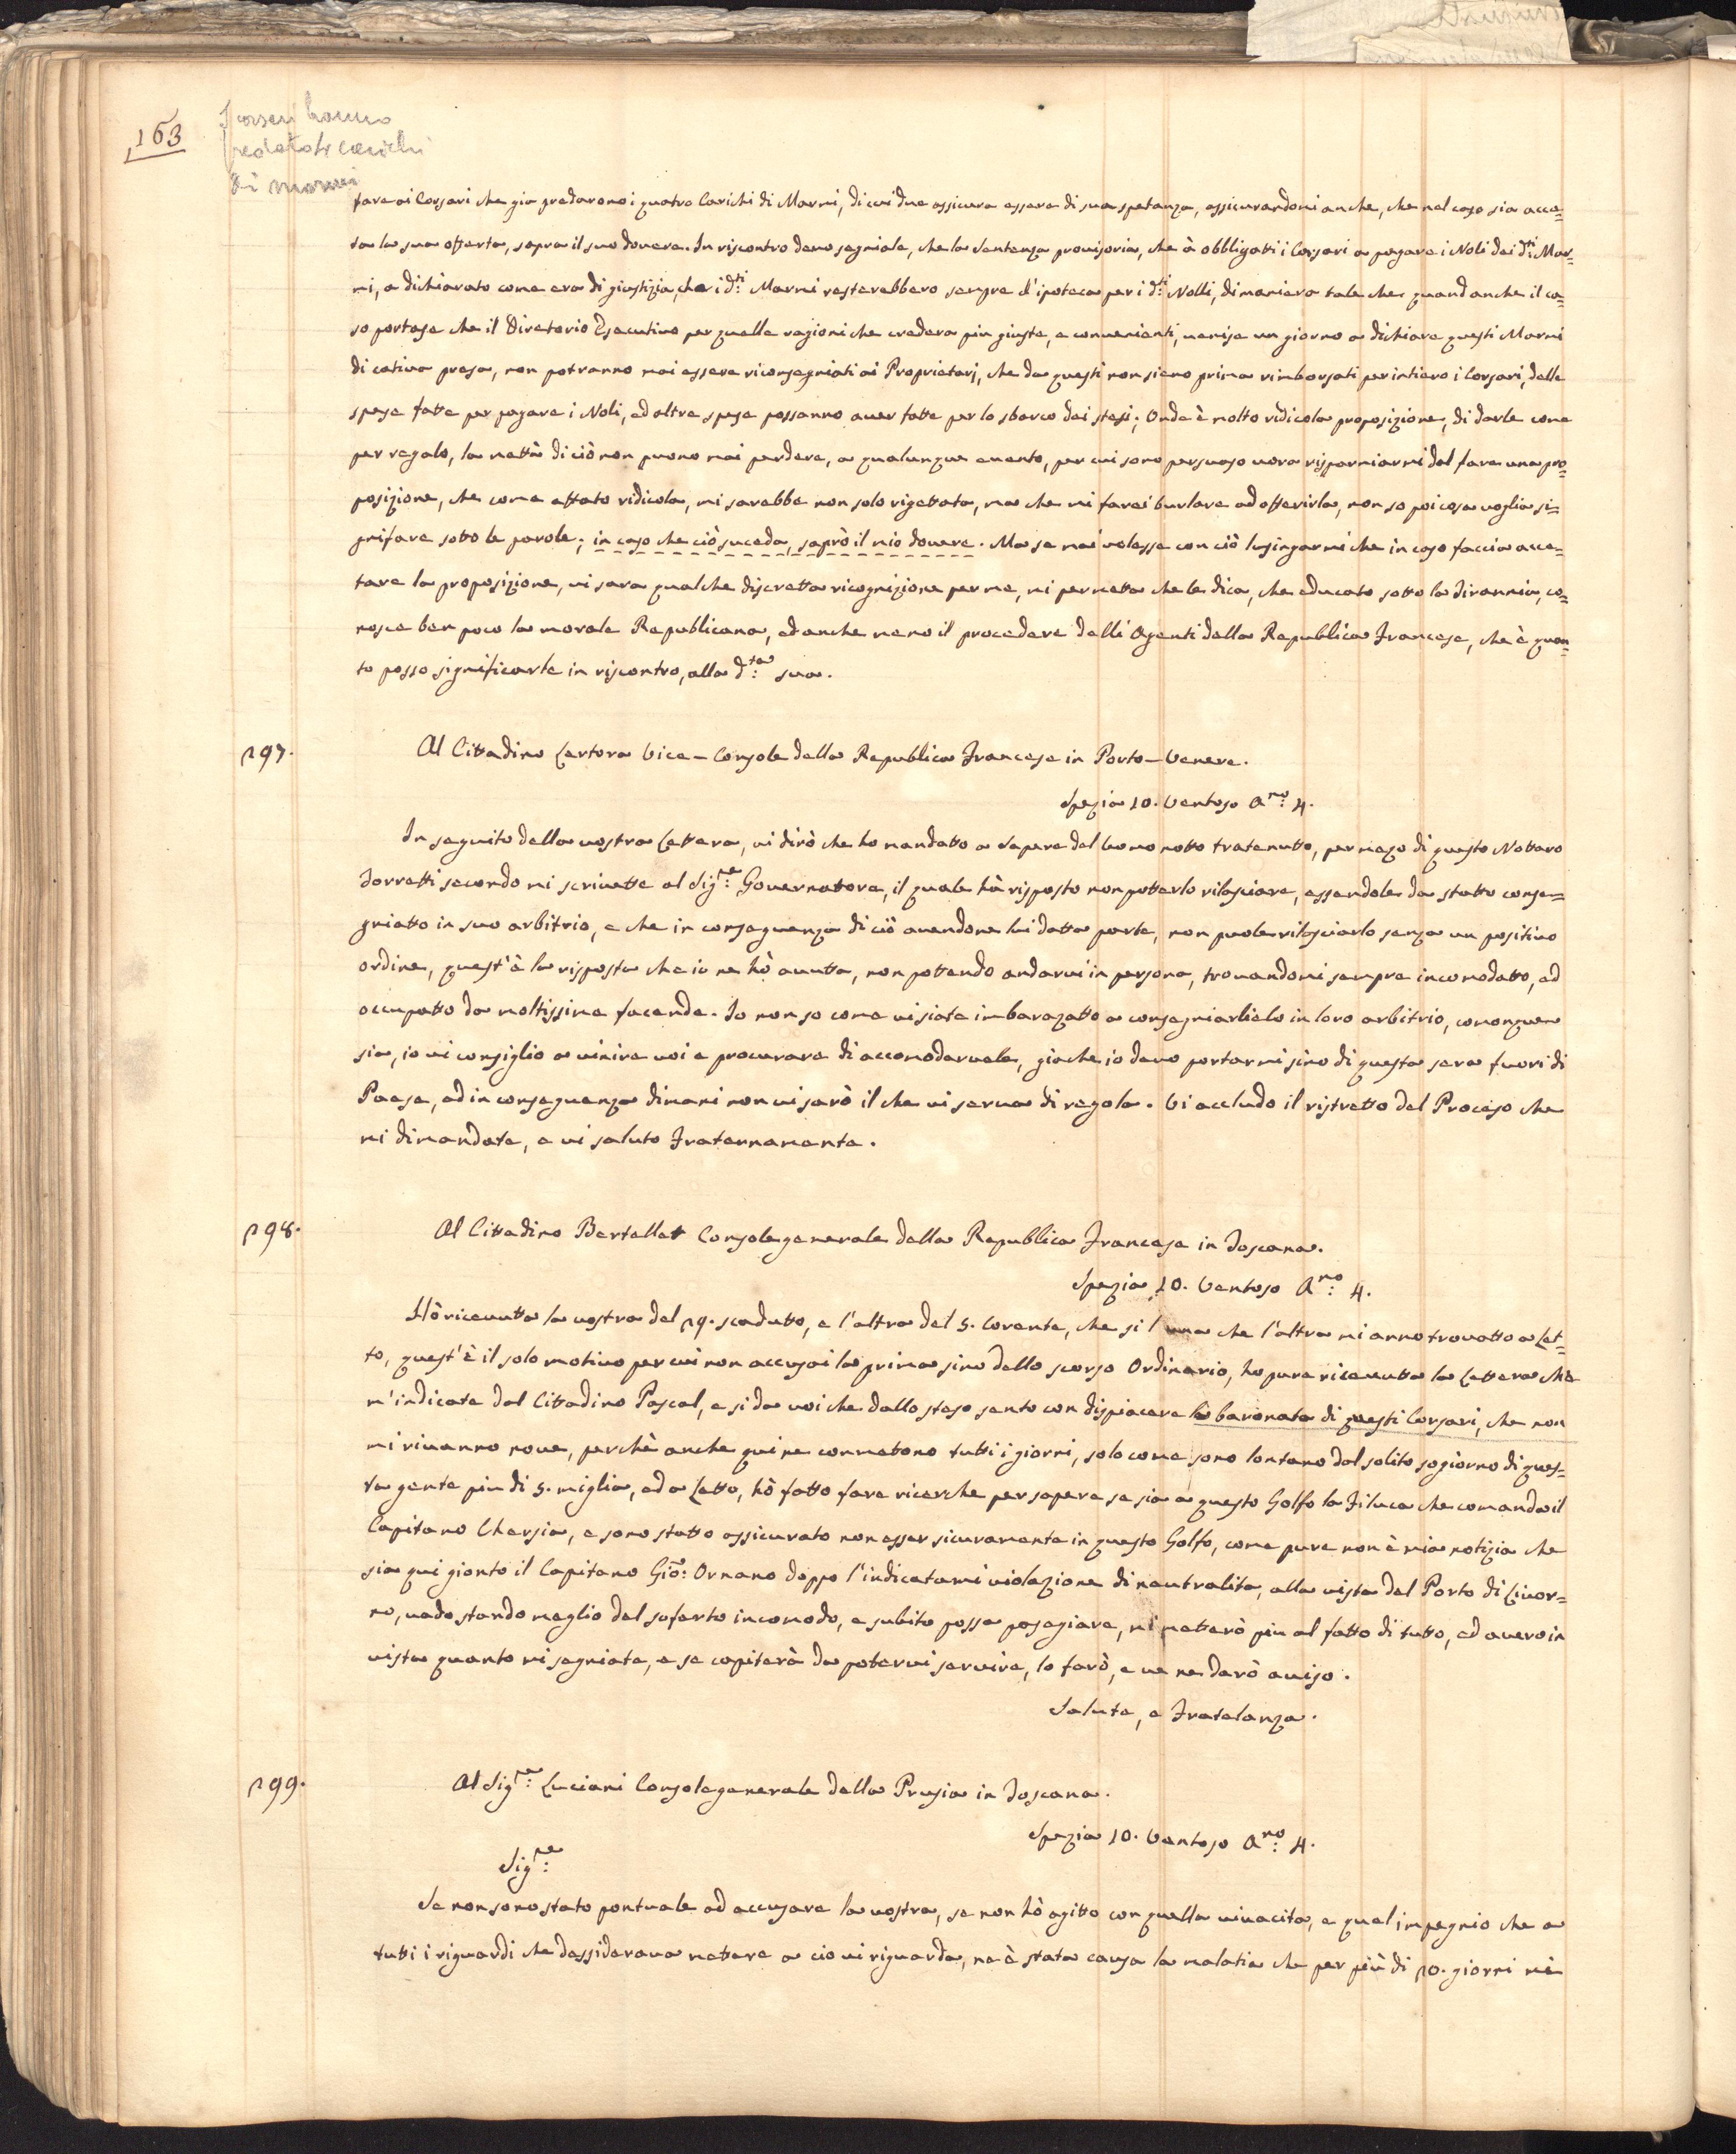 163
I corsari hanno
predato 4 carichi
di marmi
fare ai Corsari che gia predarono i quatro Carichi di Marmi, di cui due assicura essere di sua spetanza, assicurandomi anche, che nel caso sia acce=
ta la sua offerta, sapra il suo dovere. In riscontro devo segniale, che la Sentenza provisoria, che à obbligatti i Corsari a pagare i Noli dei d:ti Mar=
mi, a dichiarato come era di giustizia, che i d:ti Marmi resterebbero sempre d'ipoteca per i d:ti Nolli, dimaniera tale che quand anche il ca=
so portase che il Diretorio Esecutivo per quelle ragioni che credera piu giuste, e convenienti, venise un giorno a dichiare questi Marmi
di cativa presa, non potranno mai essere riconsegniati ai Proprietarj, che da questi non sieno prima rimborsati per intiero i Corsari, delle
spese fatte per pagare i Noli, ed altre spese possanno aver fatte per lo sbarco dei stesi; Onde è molto ridicola proposizione, di darle come
per regalo, la mettà di ciò non puono mai perdere, a qualunque evento, per cui sono persuaso vora risparmiarmi dal fare una pro=
posizione, che come affato ridicola, mi sarebbe non solo rigettata, ma che mi farei burlare ad offerirla, non so poi cosa voglia si=
gnifare sotto le parole; in caso che ciò suceda, saprò il mio dovere. Ma se mai volesse con ciò lusingarmi che in caso faccia acce=
tare la proposizione, vi sara qualche discretta ricognizione per me, mi permetta che le dica, che educato sotto la Tirannia, co=
nosce ben poco la morale Republicana, ed anche meno il procedere delli Agenti della Republica Francese, che è quan=
to posso significarle in riscontro, alla d:ta sua.
297.
Al Cittadino Lertora Vice-Console della Republica Francese in Porto-Venere.
Spezia 10. Ventoso A:no 4.
In seguito della vostra Lettera, vi dirò che ho mandatto a Sapere del Uomo notto tratenutto, per mezo di questo Nottaro
Torretti secondo mi scrivette al Sig:re Governatore, il quale hà risposto non potterlo rilasciare, essendole da statto conse=
gniatto in suo arbitrio, e che in conseguenza di ciò avendone lui datta parte, non puole rilasciarlo senza un positivo
ordine, quest'è la risposta che io ne hò avutta, non pottendo andarvi in persona, trovandomi sempre incomodatto, ed
occupatto da moltissime facende. Io non so come visiate imbarazatto a consegniarlielo in loro arbitrio, comonque
sia, io vi consiglio a vinire voi e procurare di accomodarvele, giache io devo portarmi sino di questa sera fuori di
Paese, ed in conseguenza dimani non vi sarò il che vi serva di regola. Vi accludo il ristretto del Proceso che
mi dimandate, e vi saluto Fraternamente.
298.
Al Cittadino Bertellet Console generale della Republica Francese in Toscana.
Spezia 10. Ventoso A:no 4.
Hò ricevutta la vostra del 29. scadutto, e l'altra del 5. Corente, che si l'una che l'altra mi anno trovatto a Let=
to, quest'è il solo motivo per cui non accusai la prima sino dello scorso Ordinario, ho pure ricevutta la Lettera che
m'indicate dal Cittadino Pascal, e si da voi che dallo steso sento con dispiacere le baronate di questi Corsari, che non
mi rivanno nove, perchè anche qui ne commetono tutti i giorni, solo come sono lontano dal solito sogiorno di ques=
ta gente piu di 5. miglia, ed a Letto, hò fatto fare ricerche per sapere se sia a questo Golfo la Filuca che comanda il
Capitano Chersia, e sono statto assicurato non esser sicuramente in questo Golfo, come pure non è mia notizia che
sia qui gionto il Capitano Gio: Ornano doppo l'indicatami violazione di neutralita, alla vista del Porto di Livor=
no, vado stando meglio del soferto incomodo, e subito possa pasegiare, mi metterò piu al fatto di tutto, ed avero in
vista quanto mi segniate, e se capiterà da potervi servire, lo farò, e ve ne darò aviso.
Salute, e Fratelanza.
299.
Al Sig:re Luciani Console generale della Prusia in Toscana.
Spezia 10. Ventoso A:no 4.
Sig:re
Se non sono stato pontuale ad accusare la vostra, se non hò agitto con quella vivacita, e quel impegnio che a
tutti i riguardi che dessiderava mettere a cio vi riguarda, ne è stata causa la malatia che per più di 20. giorni mi